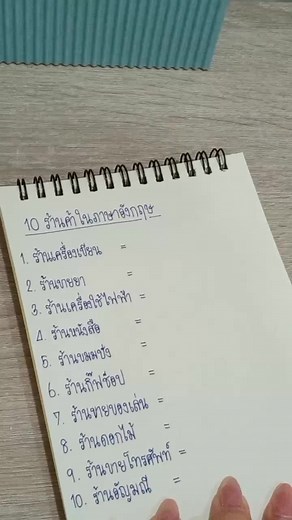 10 ร้านค้าในภาษาอังกฤษ
1. ร้านเครื่องเขียน =
2. ร้านขายยา =
3. ร้านเครื่องใช้ไฟฟ้า =
4. ร้านหนังสือ =
5. ร้านขนมปัง =
6. ร้านกิ๊ฟช็อป =
7. ร้านขายของเล่น =
8. ร้านดอกไม้ =
9. ร้านขายโทรศัพท์ =
10. ร้านอัญมณี =